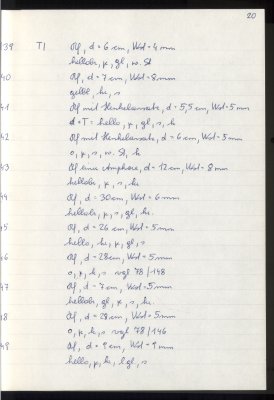 20
139 T1 Rf, d = 6 cm, Wd = 4 mm
hellob, r, gl, w. St
40 Rf, d = 7 cm, Wd = 8 mm
gelbl, h, s
41 Rf mit Henkelansatz, d = 5,5 cm, Wd = 5 mm
T = hello, r, gl, s, h
42 Rf mit Henkelansatz, d = 6 cm, Wd = 5 mm
o, r, s, w. St, h
43 Rf einer Amphore, d = 12 cm, Wd = 8 mm
r, s, h
44 Rf, d = 30 cm, Wd = 6 mm
r, s, gl, h
45 Rf, d = 26 cm, Wd = 5 mm
hello, h, r, gl, s
46 Rf, d = 28 cm, Wd = 5 mm
o, r, h, s vgl 78/148
47 Rf, d = 7 cm, Wd = 5 mm
gl, r, s, h
48 Rf, d = 28 cm, Wd = 5 mm
o, r, h, s vgl 78/146
49 Rf, d = 9 cm, Wd = 9 mm
hello, r, h, l gl, s